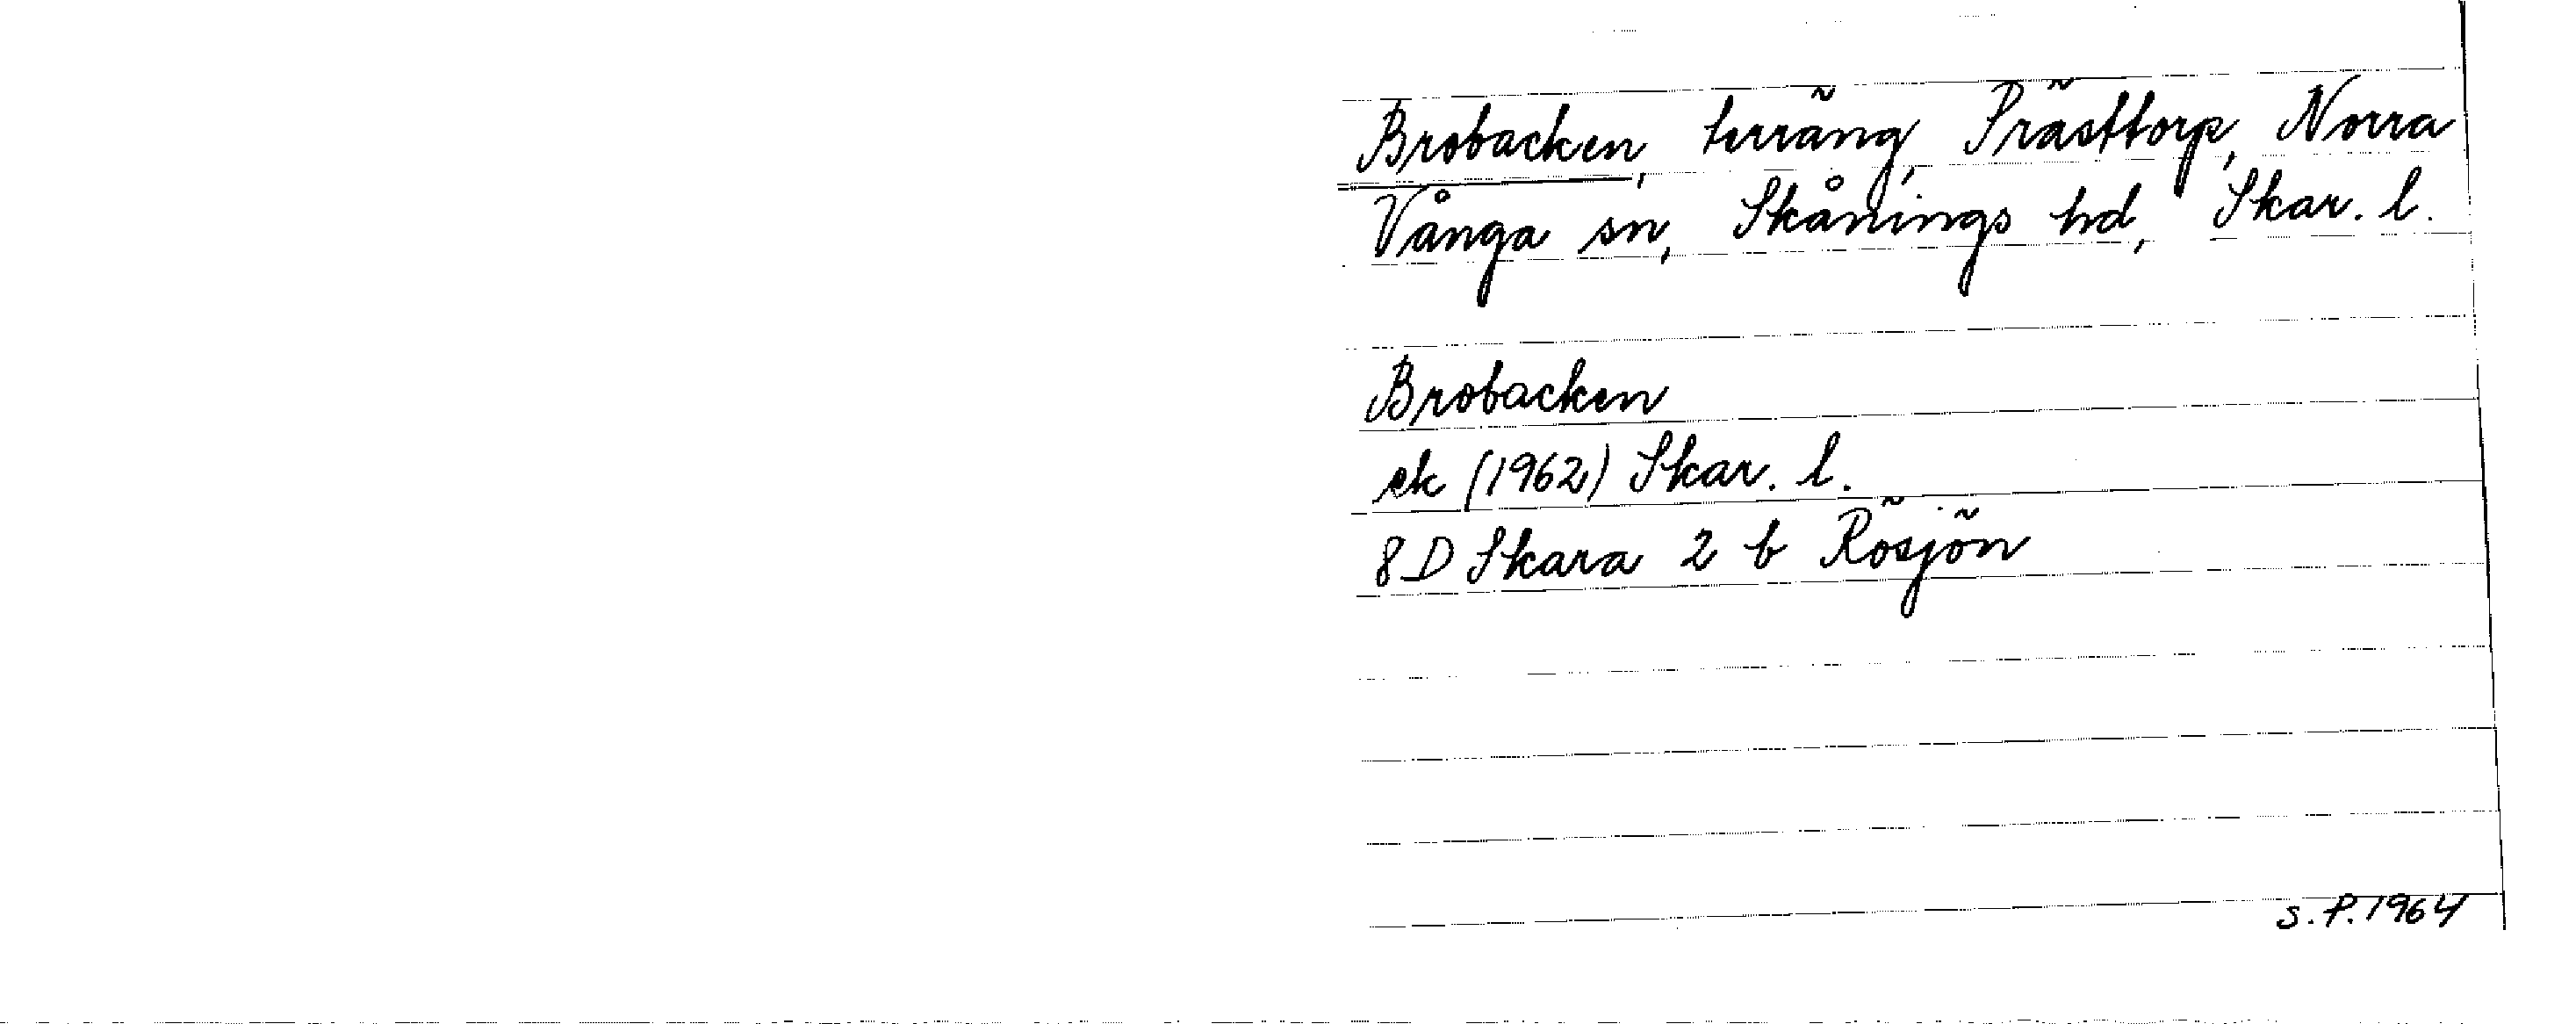 Brobacken, terräng, Prästtorp, Norra
Vånga sn, Skånings hd, Skar. l.
Brobacken
ek (1962) Skar. l.
8 D Skara 2 b Rösjön
S.P. 1964